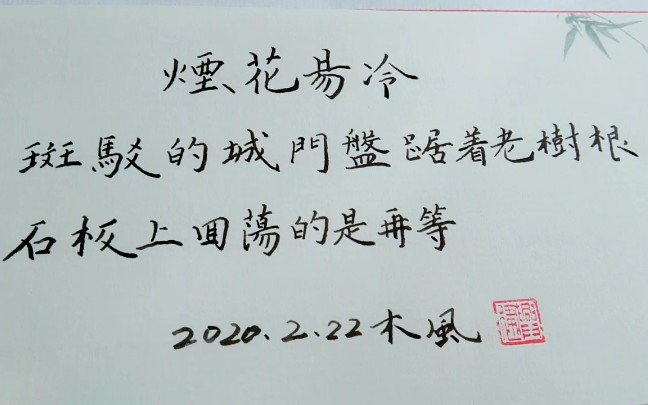 煙花易冷
斑駁的城門盤踞着老樹根
石板上回蕩的是再等
2020.2.22木風